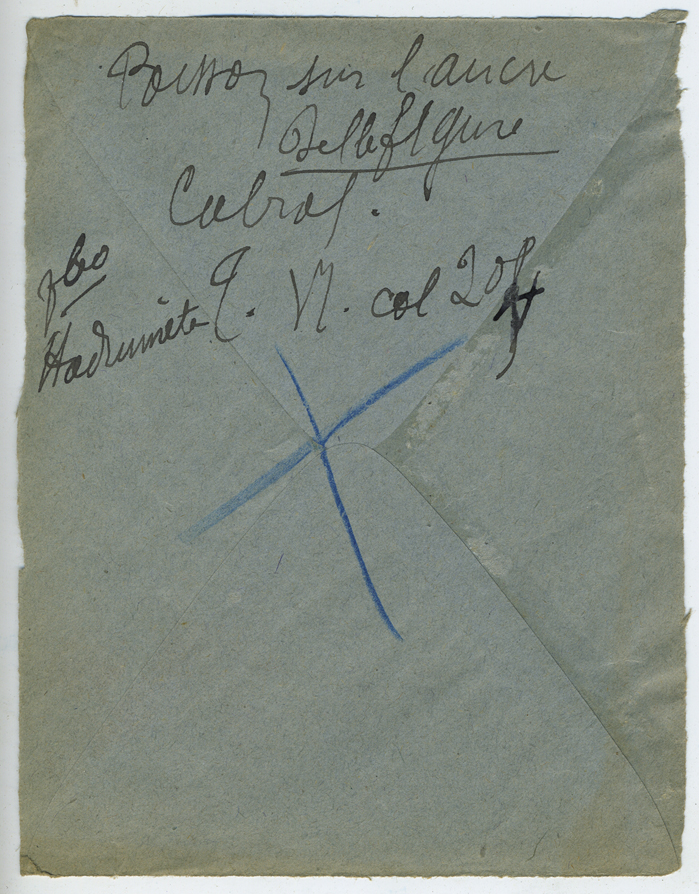 Poisson sur l'ancre
Bellefigure
Cabrol.
Hadrumète T. VI. col 20